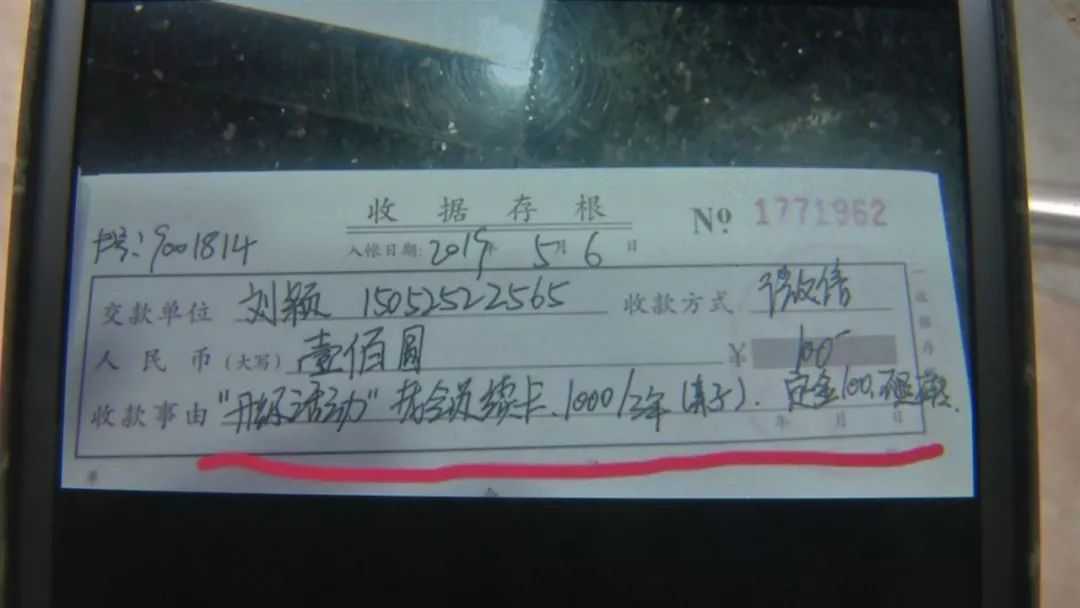 收据存根
№ 1771962
卡号:9001814
入帐日期:2019年5月6日
交款单位 刘颖 15052522565 收款方式 微信
人民币(大写)壹佰圆 ¥ 100-
收款事由 "升级活动" 老会员续卡.1000/3年(亲子). 定金100,不退
年 月 日